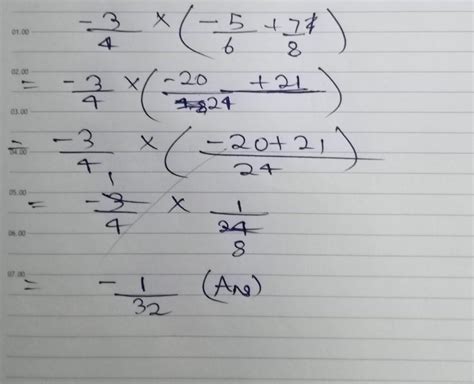 01.00 -3/4 × (-5/6 + 7/8)
02.00 = -3/4 × (-20 + 21 / 24)
03.00
04.00 = -3/4 × (-20+21 / 24)
05.00 = -3/4 × 1/24
1
8
06.00
07.00 = -1/32 (Ans)